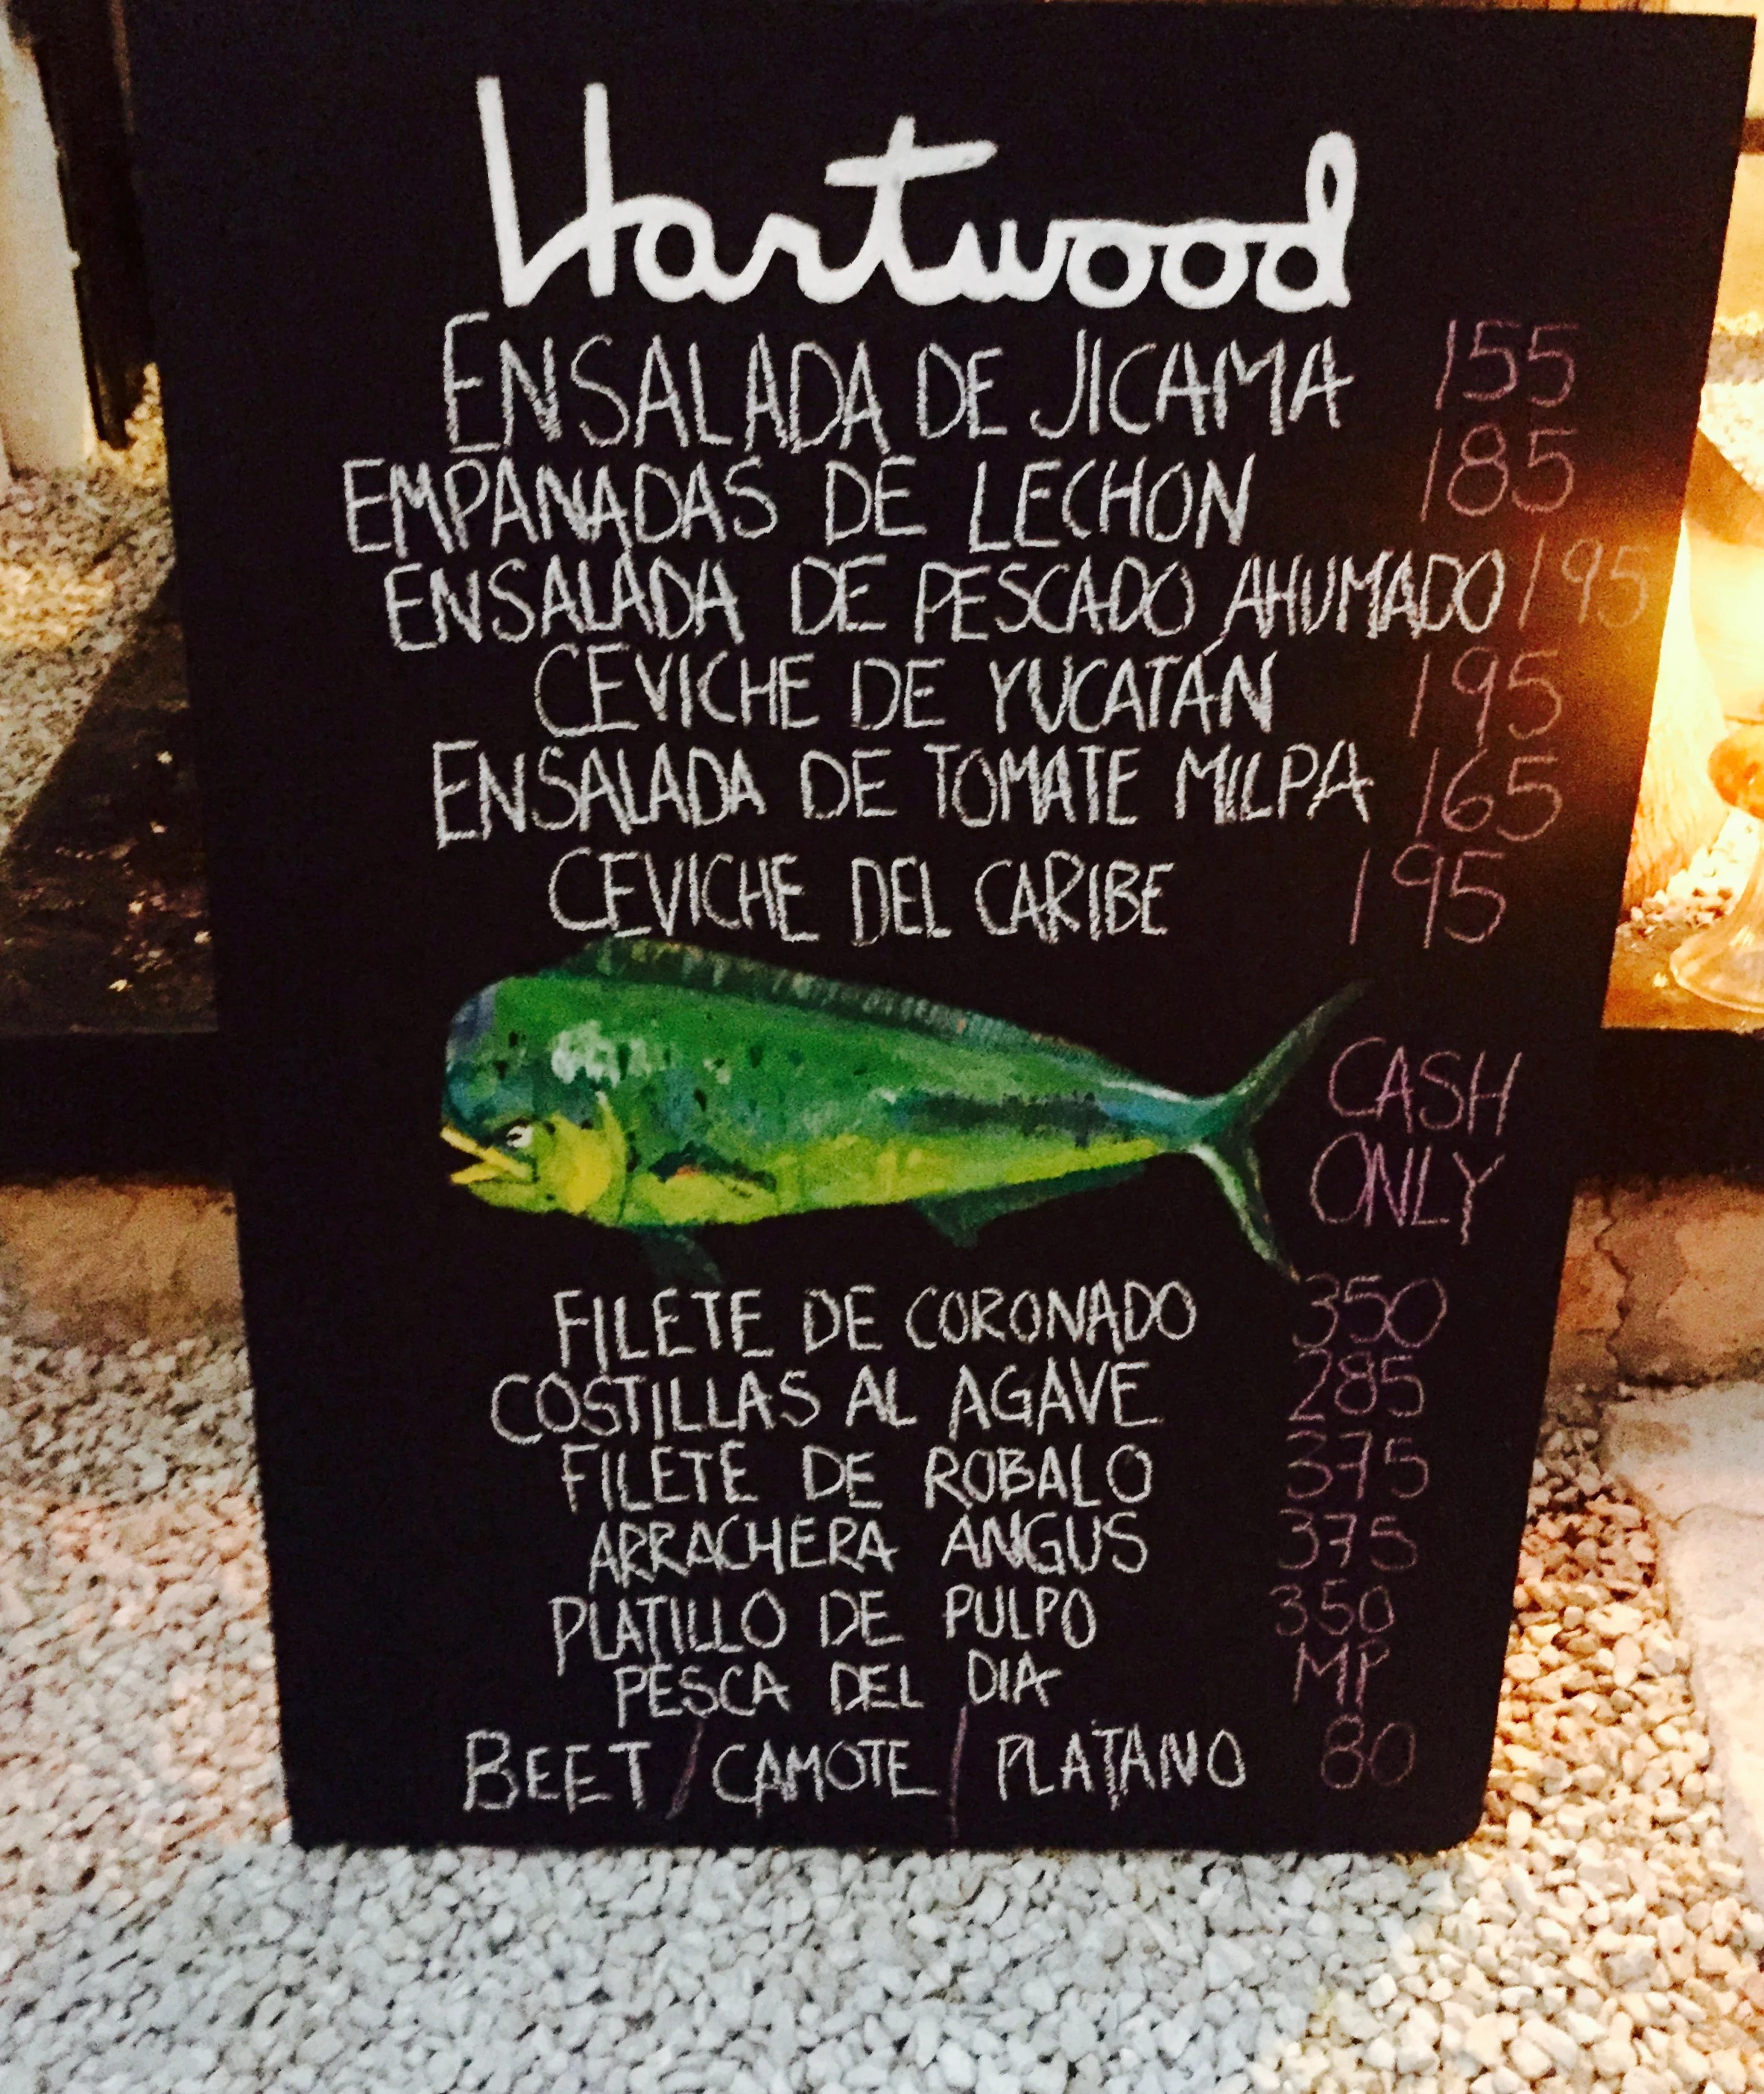 Hartwood
ENSALADA DE JICAMA 155
EMPANADAS DE LECHON 185
ENSALADA DE PESCADO AHUMADO 195
CEVICHE DE YUCATÁN 195
ENSALADA DE TOMATE MILPA 165
CEVICHE DEL CARIBE 195
CASH
ONLY
FILETE DE CORONADO 350
COSTILLAS AL AGAVE 285
FILETE DE ROBALO 375
ARRACHERA ANGUS 375
PLATILLO DE PULPO 350
PESCA DEL DIA MP
BEET / CAMOTE / PLATANO 80